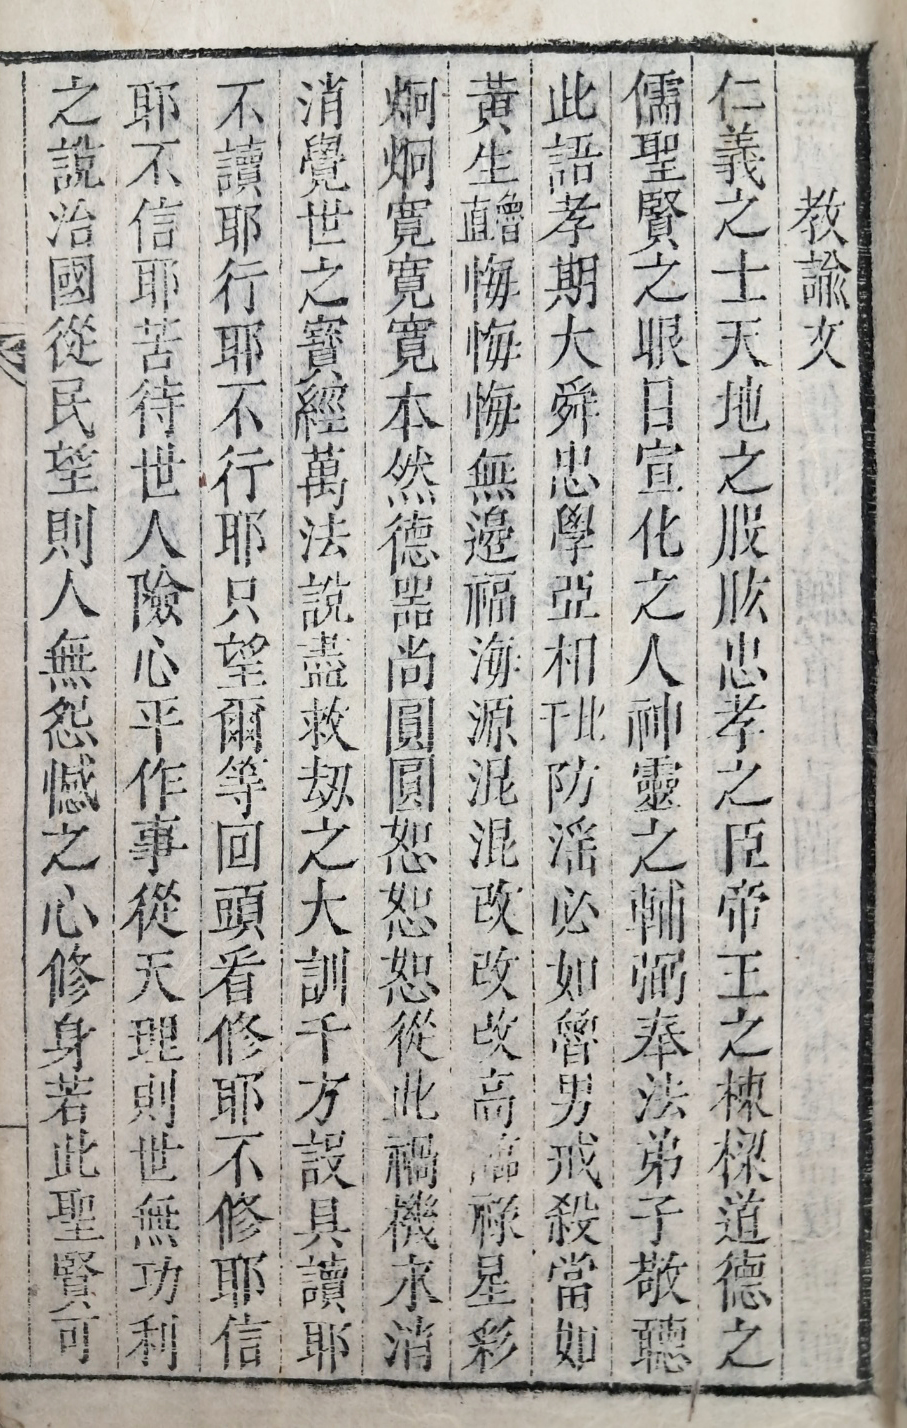 教諭文
仁義之士天地之股肱忠孝之臣帝王之棟樑道德之
儒聖賢之眼目宣化之人神靈之輔弼奉法弟子敬聽
此語孝期大舜忠學亞相比干防淫必如魯男戒殺當如
黃生直鱠悔悔悔無邊福海源混混改改改高高祿星彩
炯炯寬寬寬本然德器尚圓圓恕恕恕從此禍機永消
消覺世之寶經萬法說盡救刼之大訓千方設具讀耶
不讀耶行耶不行耶只望爾等回頭看修耶不修耶信
耶不信耶苦待世人險心平作事從天理則世無功利
之說治國從民望則人無怨憾之心修身若此聖賢可